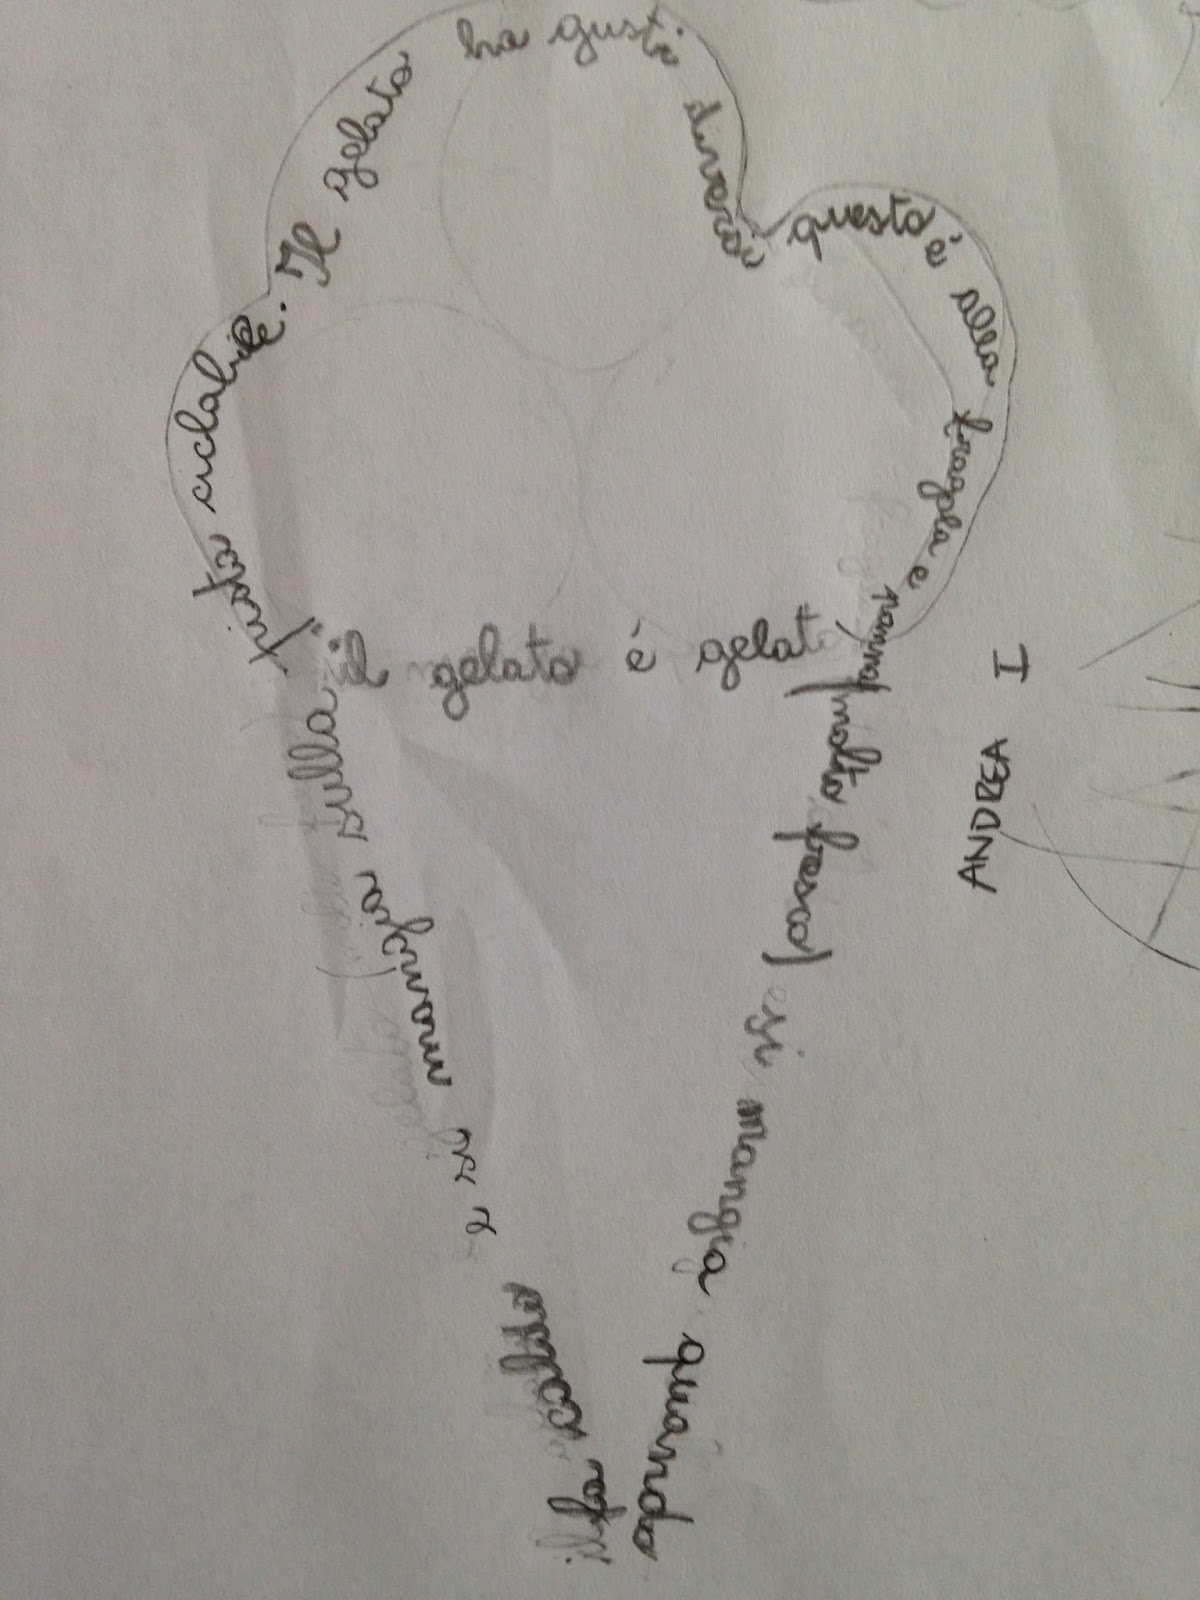 il gelato è gelato
molto fresco
e si mangia quando
fa caldo
e si mangia sulla
pista ciclabile. Il gelato
ha gusti diversi
questo è alla fragola e panna
I
ANDREA